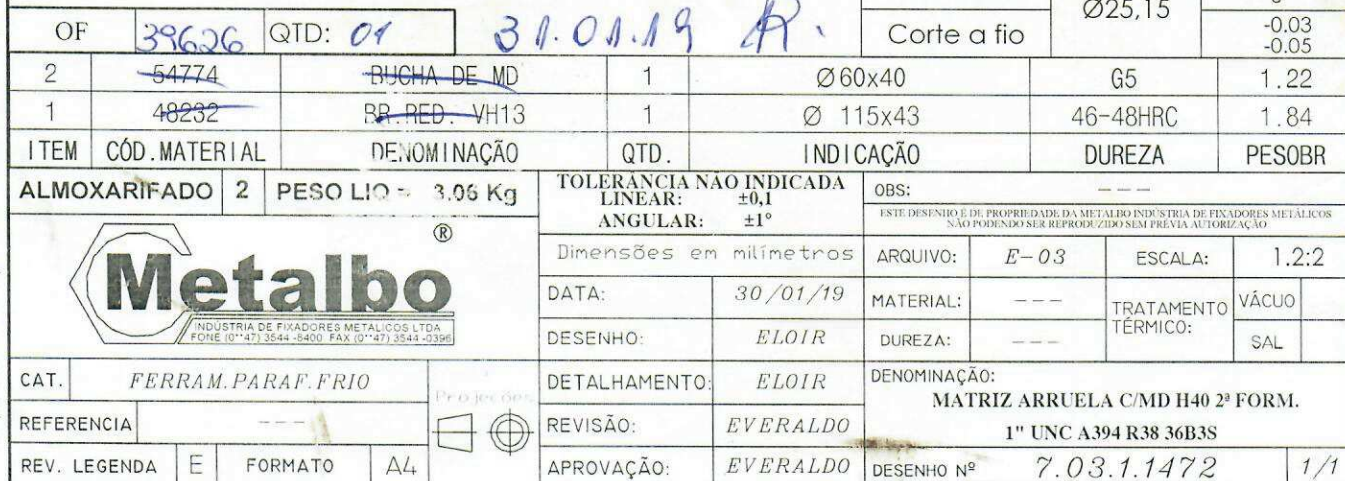 Ø25,15
-0.03
-0.05
OF 39626 QTD: 01 31.01.19 Corte a fio
2 54774 BUCHA DE MD 1 Ø60x40 G5 1.22
1 48232 BR RED. VH13 1 Ø 115x43 46-48HRC 1.84
ITEM CÓD.MATERIAL DENOMINAÇÃO QTD. INDICAÇÃO DUREZA PESOBR
ALMOXARIFADO 2 PESO LIQ = 3.06 Kg
TOLERÂNCIA NÃO INDICADA
LINEAR: ±0,1
ANGULAR: ±1°
OBS: ---
ESTE DESENHO É DE PROPRIEDADE DA METALBO INDUSTRIA DE FIXADORES METÁLICOS
NÃO PODENDO SER REPRODUZIDO SEM PRÉVIA AUTORIZAÇÃO
Metalbo ®
INDÚSTRIA DE FIXADORES METALICOS LTDA
FONE (0**47) 3544 -8400 FAX (0**47) 3544 -0396
Dimensões em milímetros
ARQUIVO: E-03 ESCALA: 1.2:2
DATA: 30/01/19
MATERIAL: --- TRATAMENTO TÉRMICO: VÁCUO
DESENHO: ELOIR
DUREZA: --- SAL
CAT. FERRAM.PARAF.FRIO
Projeções
DETALHAMENTO: ELOIR
DENOMINAÇÃO:
MATRIZ ARRUELA C/MD H40 2ª FORM.
1" UNC A394 R38 36B3S
REFERENCIA ---
REVISÃO: EVERALDO
REV. LEGENDA E FORMATO A4
APROVAÇÃO: EVERALDO
DESENHO Nº 7.03.1.1472 1/1